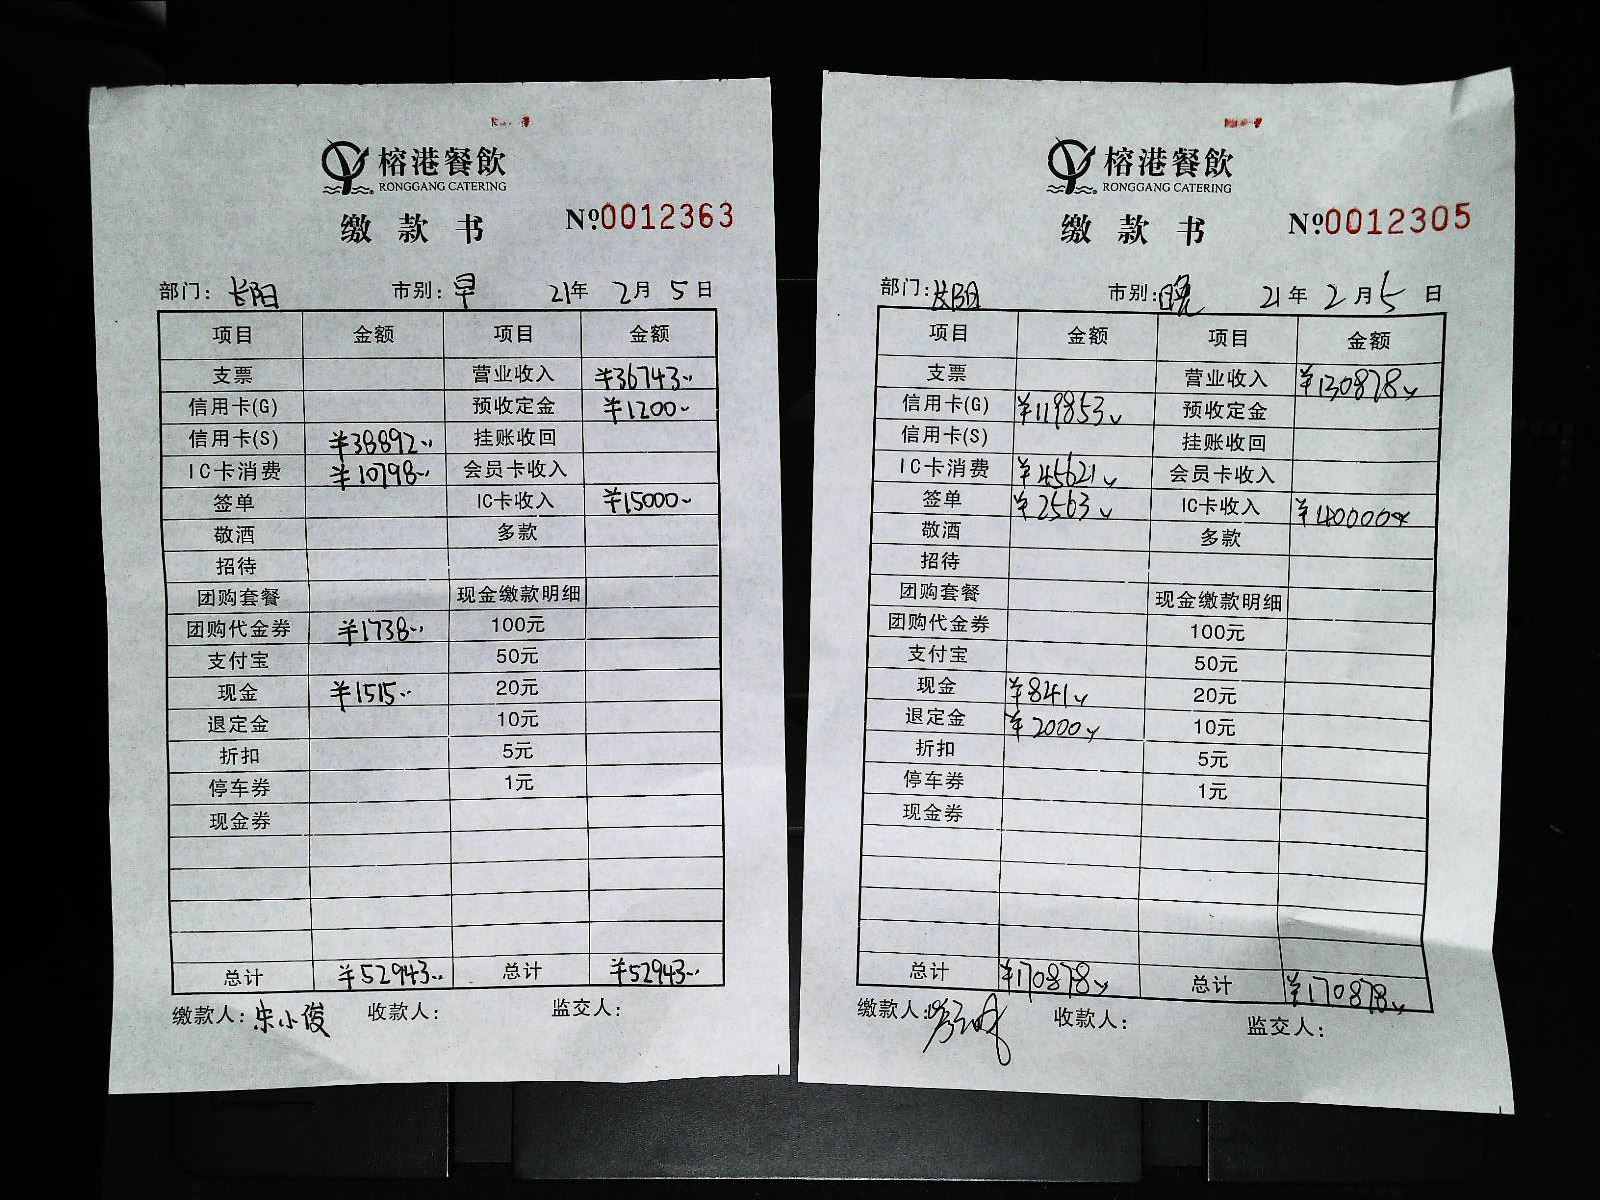 榕港餐飲
RONGGANG CATERING
缴款书 №0012363
部门：长阳 市别：早 21年 2月 5日
项目 金额 项目 金额
支票 营业收入 ¥36743
信用卡(G) 预收定金 ¥1200
信用卡(S) ¥38892 挂账收回
IC卡消费 ¥10798 会员卡收入
签单 IC卡收入 ¥15000
敬酒 多款
招待
团购套餐 现金缴款明细
团购代金券 ¥1738 100元
支付宝 50元
现金 ¥1515 20元
退定金 10元
折扣 5元
停车券 1元
现金券
总计 ¥52943 总计 ¥52943
缴款人：宋小俊 收款人： 监交人：
榕港餐飲
RONGGANG CATERING
缴款书 №0012305
部门：长阳 市别：晚 21年 2月 5日
项目 金额 项目 金额
支票 营业收入 ¥130878
信用卡(G) ¥119853 预收定金
信用卡(S) 挂账收回
IC卡消费 ¥45621 会员卡收入
签单 ¥2563 IC卡收入 ¥40000
敬酒 多款
招待
团购套餐 现金缴款明细
团购代金券 100元
支付宝 50元
现金 ¥841 20元
退定金 ¥2000 10元
折扣 5元
停车券 1元
现金券
总计 ¥170878 总计 ¥170878
缴款人： 收款人： 监交人：